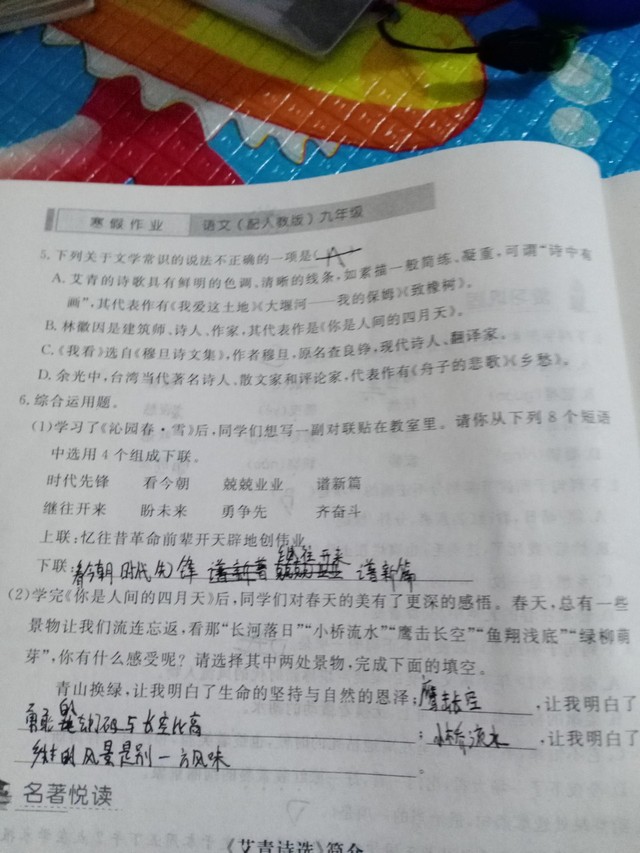 寒假作业 语文(配人教版)九年级
5. 下列关于文学常识的说法不正确的一项是( A )
A. 艾青的诗歌具有鲜明的色调、清晰的线条,如素描一般简练、凝重,可谓“诗中有
画”,其代表作有《我爱这土地》《大堰河——我的保姆》《致橡树》。
B. 林徽因是建筑师、诗人、作家,其代表作是《你是人间的四月天》。
C.《我看》选自《穆旦诗文集》,作者穆旦,原名查良铮,现代诗人、翻译家。
D. 余光中,台湾当代著名诗人、散文家和评论家,代表作有《舟子的悲歌》《乡愁》。
6. 综合运用题。
(1)学习了《沁园春·雪》后,同学们想写一副对联贴在教室里。请你从下列8个短语
中选用4个组成下联。
时代先锋 看今朝 兢兢业业 谱新篇
继往开来 盼未来 勇争先 齐奋斗
上联:忆往昔革命前辈开天辟地创伟业
下联:看今朝 时代先锋 继往开来 谱新篇
(2)学完《你是人间的四月天》后,同学们对春天的美有了更深的感悟。春天,总有一些
景物让我们流连忘返,看那“长河落日”“小桥流水”“鹰击长空”“鱼翔浅底”“绿柳萌
芽”,你有什么感受呢?请选择其中两处景物,完成下面的填空。
青山换绿,让我明白了生命的坚持与自然的恩泽;鹰击长空,让我明白了
与长空比高;小桥流水,让我明白了
的风景是别一方风味。
名著悦读
《艾青诗选》简介